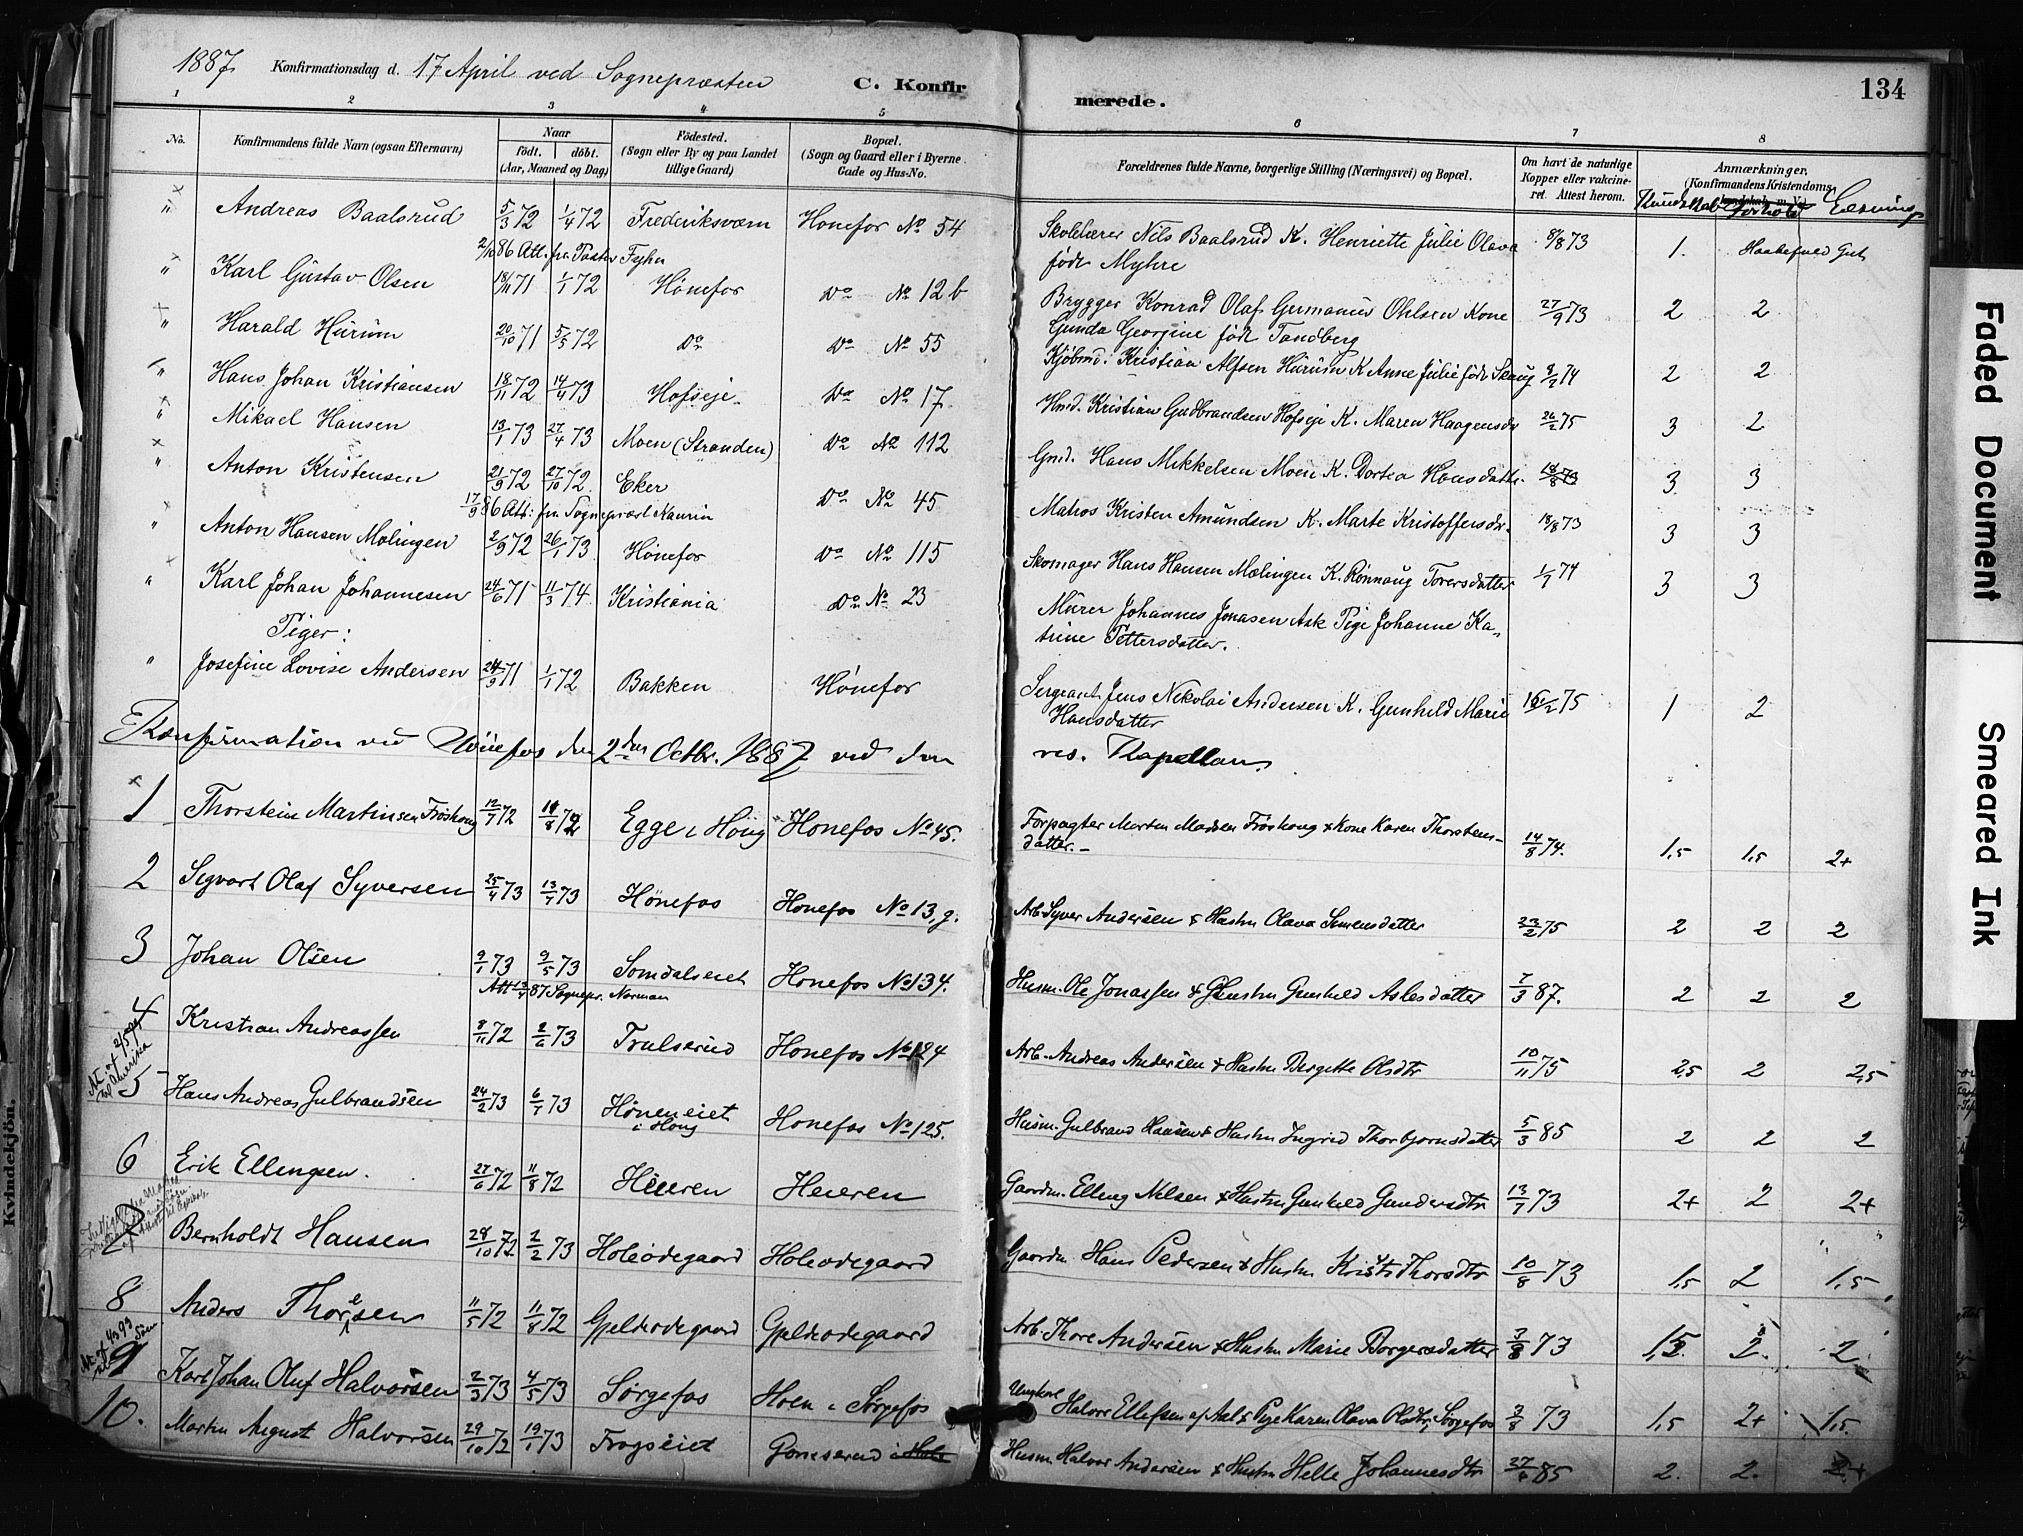 1887. Konfirmationsdag d. 17 April ved Sognepræsten C. Konfirmerede. 134
1 2 3 4 5 6 7 8
No. Konfirmandens fulde Navn (ogsaa Efternavn) Naar født. døbt. (Aar, Maaned og Dag) Födested. (Sogn eller By og paa Landet tillige Gaard) Bopæl. (Sogn og Gaard eller i Byerne Gade og Hus-No. Forældrenes fulde Navne, borgerlige Stilling (Næringsvei) og Bopæl. Om havt de naturlige Kopper eller vakcineret. Attest herom. Anmærkninger, (Konfirmandens Kristendomskundskab m. V.)
Kundskab Forhold Læsning
" Andreas Baalsrud 5/3 72 1/4 72 Frederiksværn Hønefos No 54 Skolelærer Nils Baalsrud K. Henriette Julie Olava født Myhre 8/8 73 1.
2/10 86 Att. fra Pastor Fyhn
" Karl Gustav Olsen 18/11 71 1/1 72 Hönefos Do No 12 b Brygger Konrad Olaf Germanus Ohlsen Kone Gunda Georgine född Tandberg 27/9 73 2 2
" Harald Hurum 20/10 71 5/5 72 Do Do No 55 Kjøbmd. Kristian Alfsen Hurum K Anne Julie født Skaug 74 2 2
" Hans Johan Kristiansen 18/11 72 14/4 73 Hofseje Do No 17 Hmd. Kristian Gudbrandsen Hofseje K. Maren Haagensdr 26/2 75 3 2
" Mikael Hansen 13/1 73 27/4 73 Moen (Stranden) Do No 112 Gmd. Hans Mikkelsen Moen K. Dortea Hansdatter 18/8 73 3 3
" Anton Kristensen 21/9 72 27/10 72 Eker Do No 45 Matros Kristen Amundsen K. Marte Kristoffersdr. 18/8 73 3 3
17/9 86 Att: fra Sognepræst Kaurin
" Anton Hansen Mælingen 2/9 72 26/1 73 Hönefos Do No 115 Skomager Hans Hansen Mælingen K. Rönnaug Toversdatter 74 3 3
" Karl Johan Johannesen 24/6 71 11/3 74 Kristiania Do No 23 Murer Johannes Jonasen Ask Pige Johanne Katrine Pettersdatter.
Piger:
" Josefine Lovise Andersen 24/9 71 1/1 72 Bakken Hönefos Sergeant Jens Nikolai Andersen K. Gunhild Marie Hansdatter 75 1 2
Konfirmation ved Hönefos den 2den Octbr. 1887 ved den res. Kapellan.
1 Thorstein Martinsen Fröshoug 12/7 72 11/8 72 Egge i Houg Honefos No 45. Forpagter Martin Madsen Fröshoug & Kone Karen Thorstensdatter.- 14/8 74. 1,5 1,5 2+
2 Sigvart Olaf Syversen 25/4 73 13/7 73 Hönefos Honefos No 13, g. Arb Syver Andersen & Hustru Olava Simensdatter 23/2 75 2 2 2
3 Johan Olsen 9/1 73 9/5 73 Somdalseiet Honefos No 134. Husm. Ole Jonassen & Hustru Gunhild Aslesdatter 7/3 87. 2 2 2
Att 13/4 87 Sognepr. Norman
4 Kristian Andreassen 8/11 72 2/6 73 Trulserud Honefos No 124 Arb. Andreas Andersen & Hustru Bergitte Olsdtr 10/11 75 2,5 2 2,5
5 Hans Andreas Gulbrandsen 24/2 73 6/7 73 Höneneiet i Houg Honefos No 125. Husm. Gulbrand Hansen & Hustru Ingrid Thorbjornsdatter 5/3 85 2 2 2
6 Erik Ellingsen 27/6 72 11/8 72 Heieren Heieren Gaardm. Elling Nilsen & Hustru Gunhild Gundersdtr 13/7 73 2+ 2 2+
7 Bernholdt Hansen 28/10 72 2/2 73 Holeødegaard Holeødegaard Gaardm Hans Pedersen & Hustru Kristi Thorsdtr 10/8 73 1,5 2 1,5
8 Anders Thoresen 11/5 72 11/8 72 Gjeldeødegaard Gjeldeødegaard Arb. Thore Andersen & Hustru Marie Borgersdatter 3/8 73 1,5 2. 2
9 Karl Johan Oluf Halvorsen 2/3 73 4/5 73 Sørgefos Hoen i Sørgefos Ungkarl Halvor Ellefsen af Aal & Pige Karen Olava Olsdtr, Sørgefos 3/8 73 1,5 2+ 1,5.
10. Martin August Halvorsen 29/10 72 19/1 73 Frogseiet Goneserud i Hole Husm Halvor Andersen & Hustru Helle Johannesdtr 27/6 85 2. 2. 2+
Kvindekjön.
Faded Document
Smeared Ink